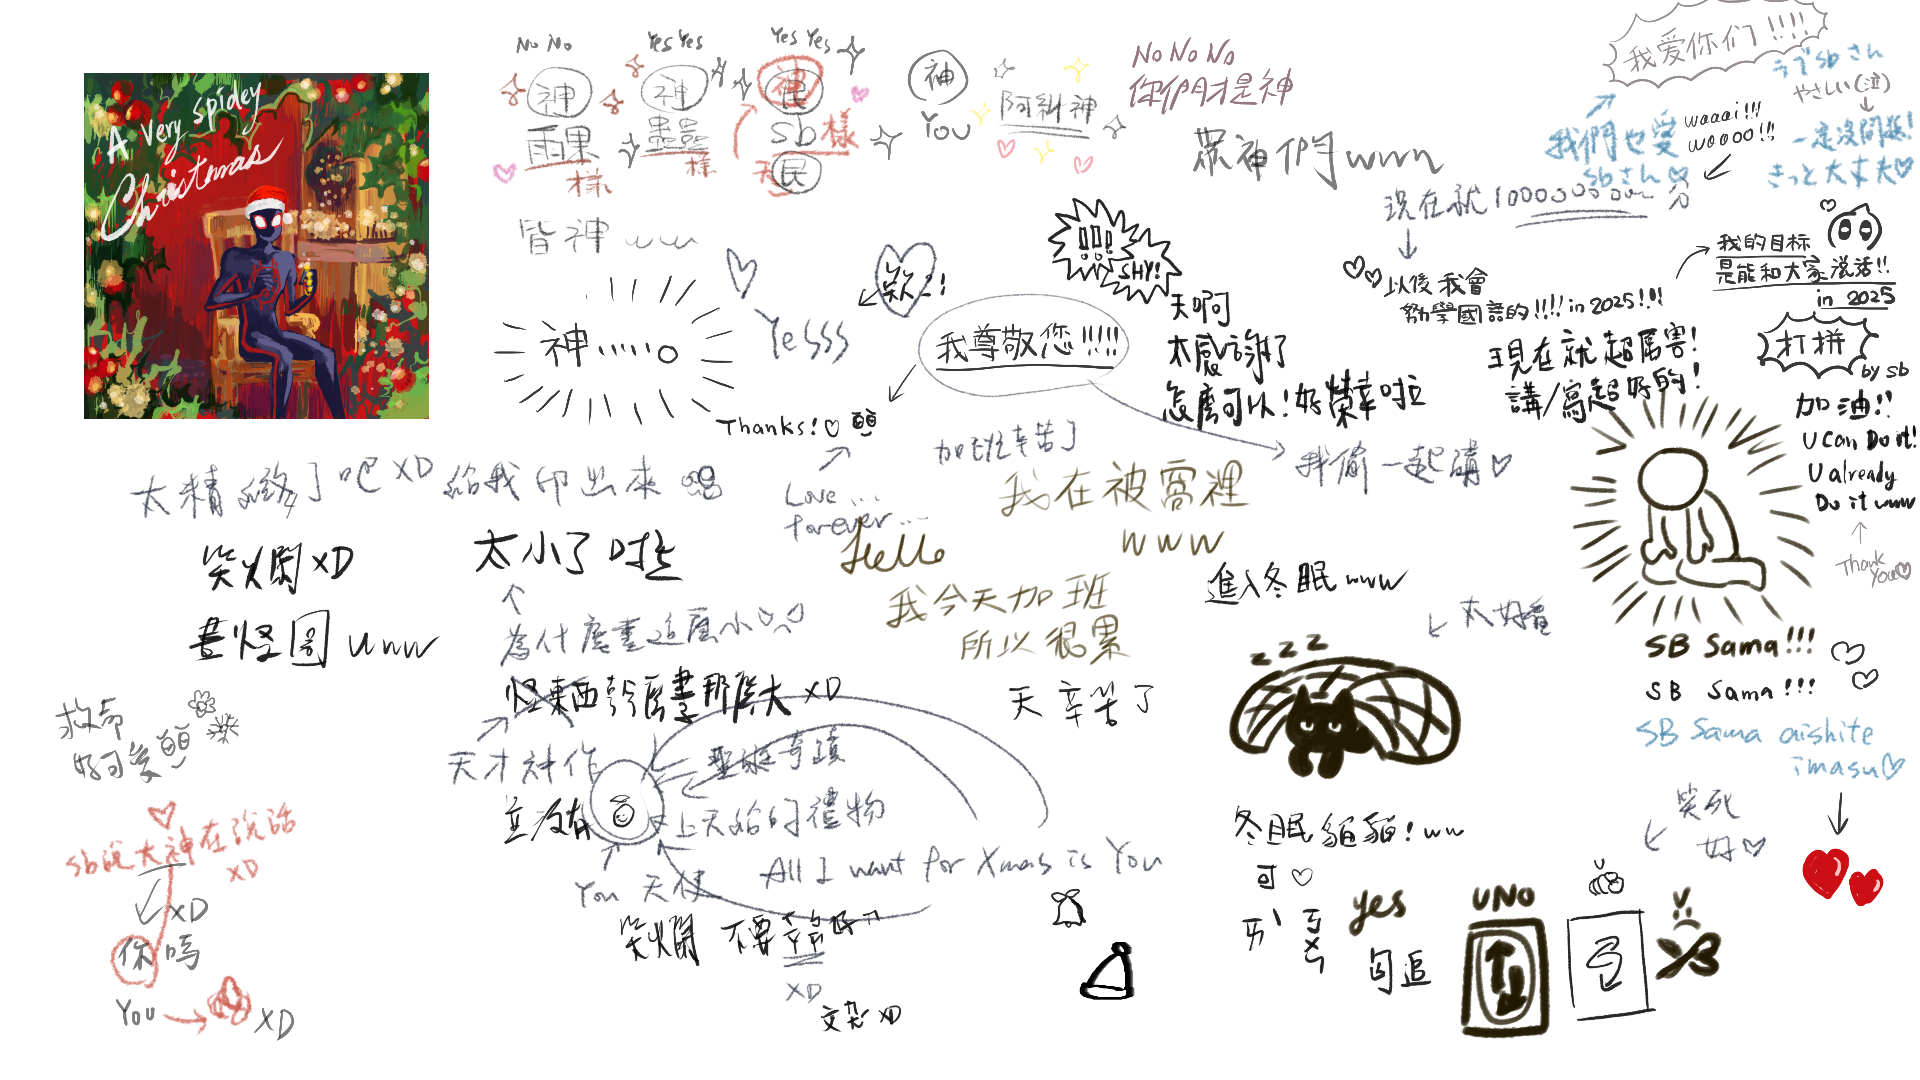 A Very Spidey
Christmas
No No
Yes Yes
Yes Yes
神
雨果
様
神
蟲蟲
様
神
民
sb様
天
民
神
You
阿糾神
No No No
你們才是神
眾神們www
皆神 www
我爱你们!!!!
sbさん
やさしい(泣)
我們也愛
sbさん♡
waaai!!!
woooo!!!
一定沒問題!
きっと大丈夫♡
現在就1000000000分
以後我會
勤學國語的!!!! in 2025!!!!
我的目标
是能和大家说话!!
in 2025
打拼
by sb
神·····。
Yesss
欸!!
我尊敬您!!!!!
Thanks!♡
!!!
SHY!
天啊
太感謝了
怎麼可以!好榮幸啦
現在就超厲害!
講/寫超好的!
加油!!
U Can Do it!
U already
Do it www
Thank
You♡
我偷一起講♡
加班辛苦了
太精緻了吧XD給我印出來
Love...
forever...
Hello
我在被窩裡
www
我今天加班
所以很累
天辛苦了
笑爛XD
畫怪圖www
太小了啦
為什麼畫這麼小
怪東西幹麼畫那麼大XD
進入冬眠www
太好看
z z z
SB Sama!!!
SB Sama!!!
SB Sama aishite
imasu♡
救命
好可愛
天才神作
聖誕奇蹟
並沒有
上天給的禮物
You 天使
All I want for Xmas is You
笑爛 不要
XD
文杂XD
sb說大神在說話
XD
XD
你嗎
You
XD
冬眠貓貓!ww
可♡
ㄞˋ
ㄎㄨㄣ
yes
UNO
笑死
好♡